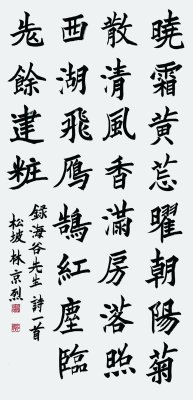 曉霜黃曜朝陽菊
散清風香滿房落照
西湖飛鴈鵠紅塵臨
餘建粧
錄海谷先生詩一首
松坡林京烈